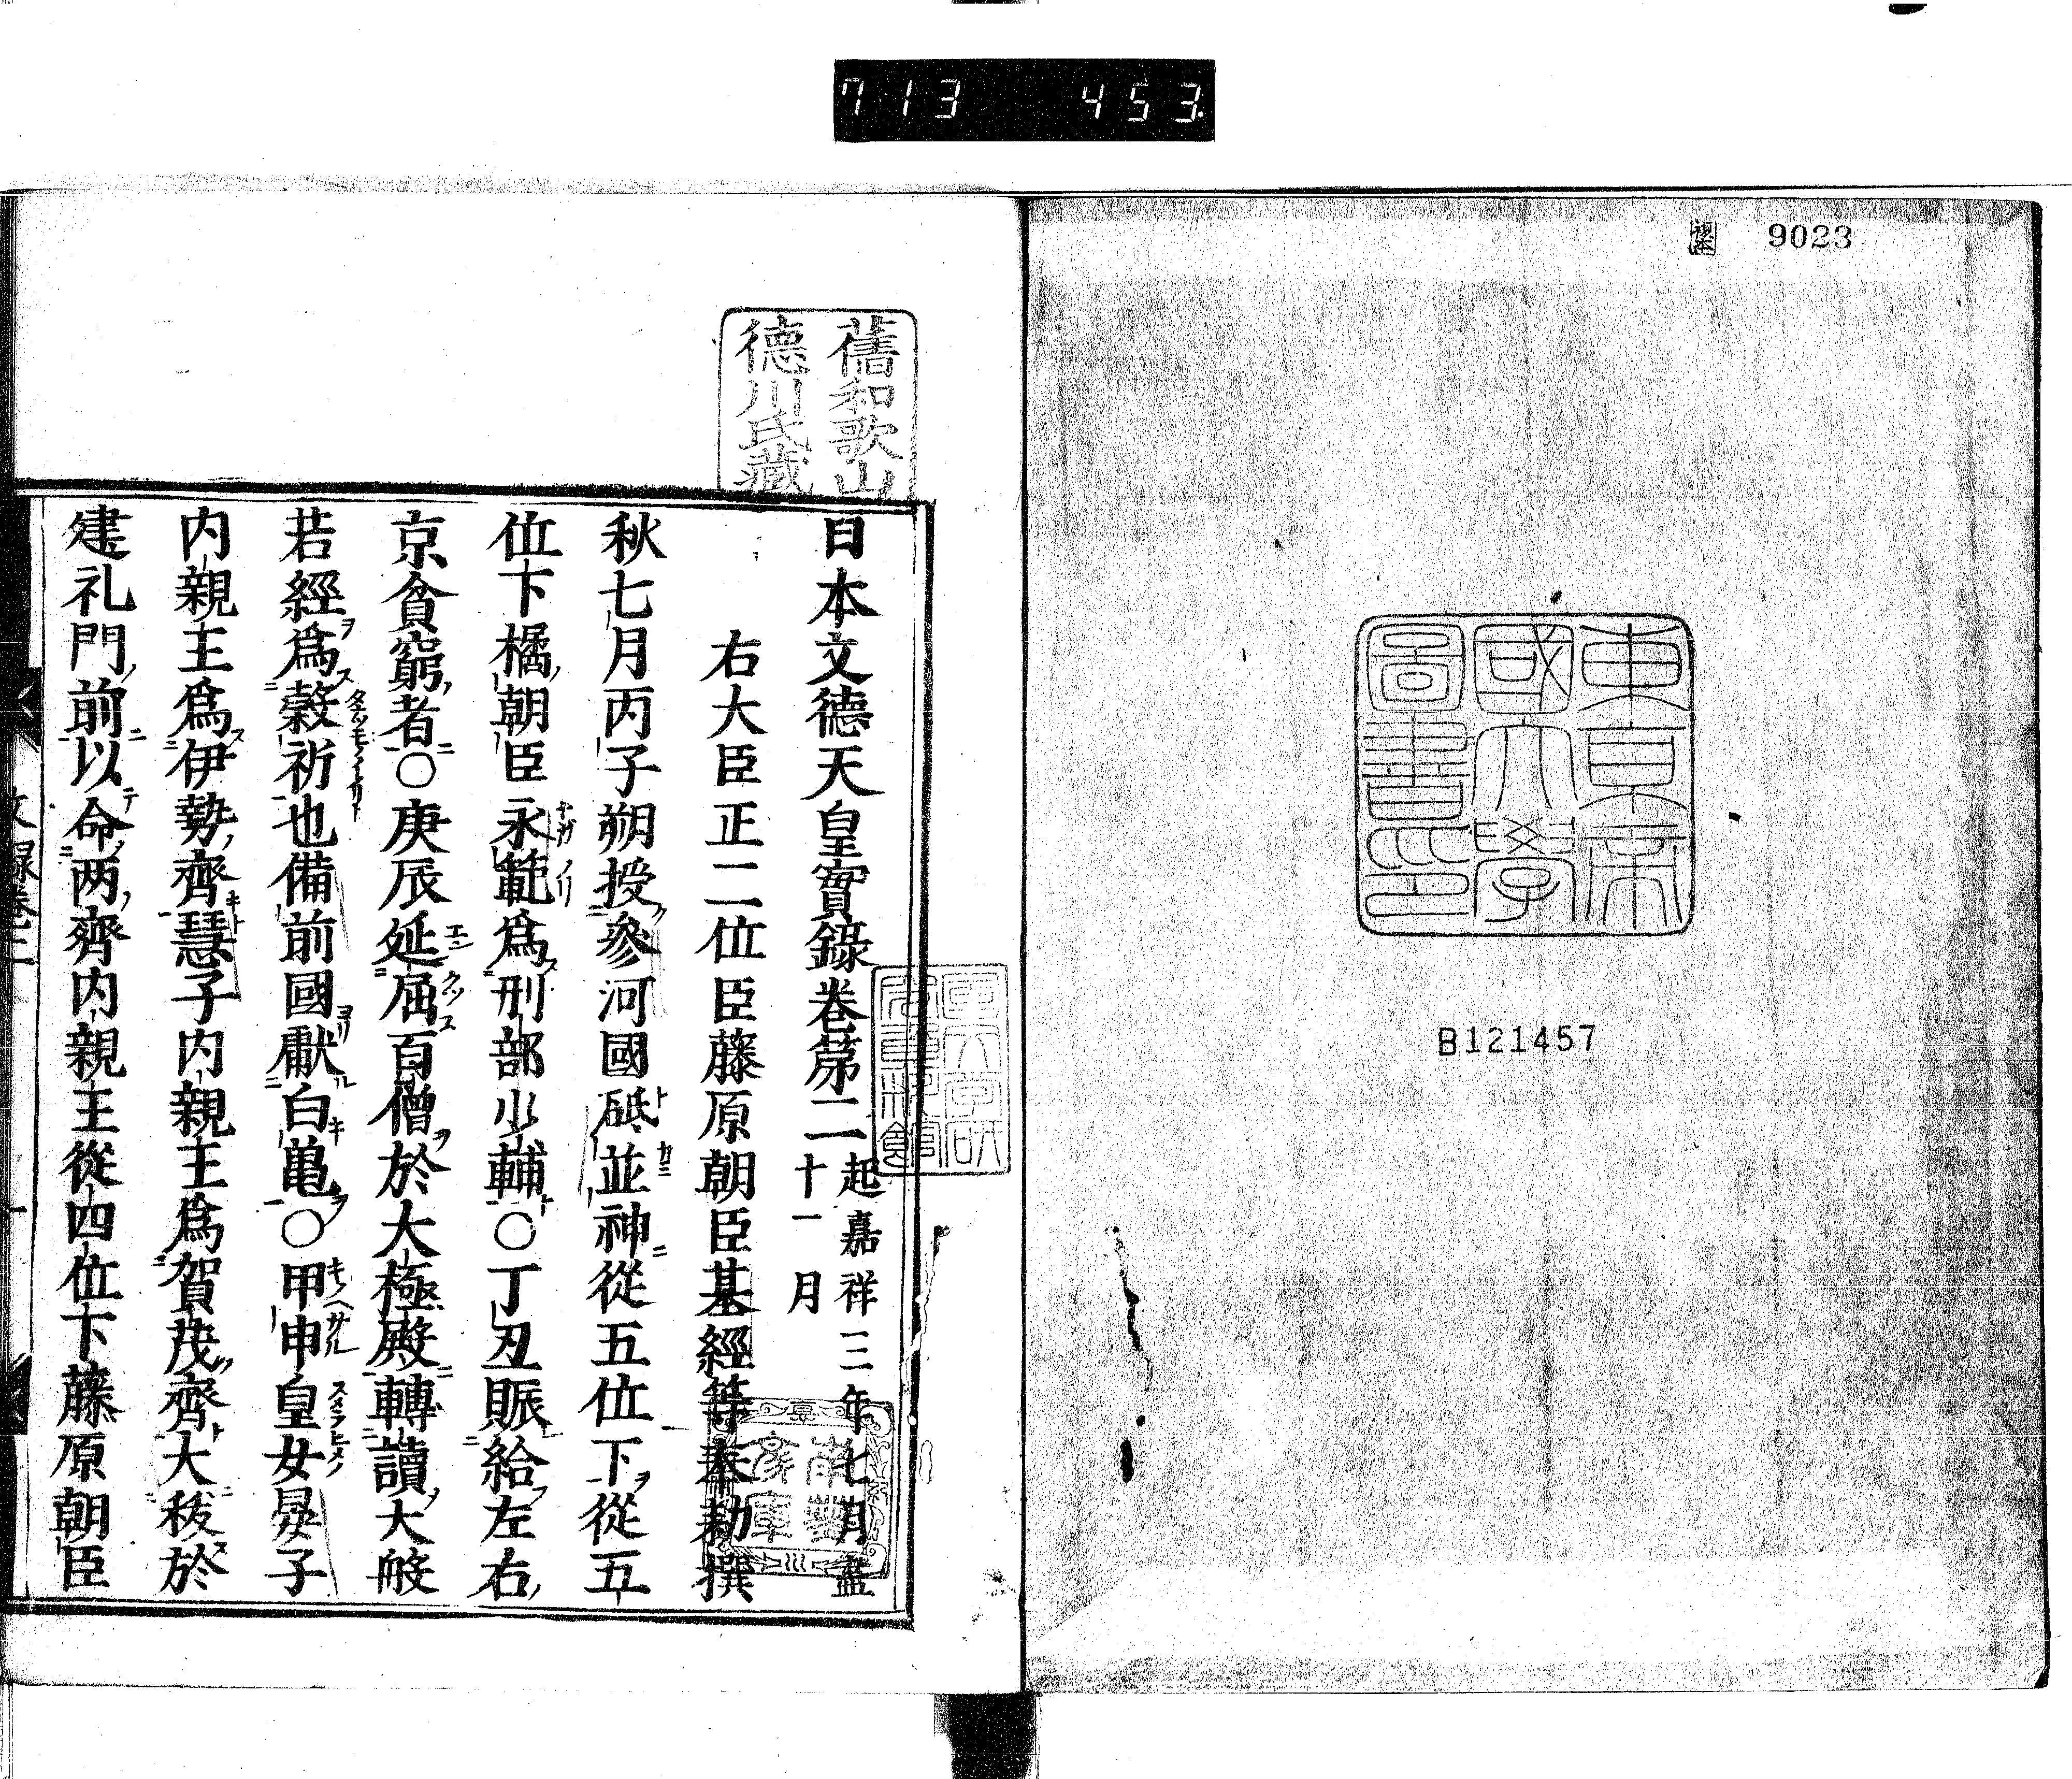 713 453
複本
9023
東京帝
國大學
圖書印
B121457
舊和歌山
德川氏藏
日本文德天皇實錄卷苐二起嘉祥三年七月盡
十一月
右大臣正二位臣藤原朝臣基經等奉勅撰
秋七月丙子朔授參河國砥並神從五位下從五
位下橘朝臣永範爲刑部少輔〇丁丑賑給左右
京貧窮者〇庚辰延屈百僧於大極殿轉讀大般
若經爲穀祈也備前國獻白亀〇甲申皇女晏子
内親王爲伊勢齊慧子内親王爲賀茂齊大秡於
建礼門前以命两齊内親王從四位下藤原朝臣